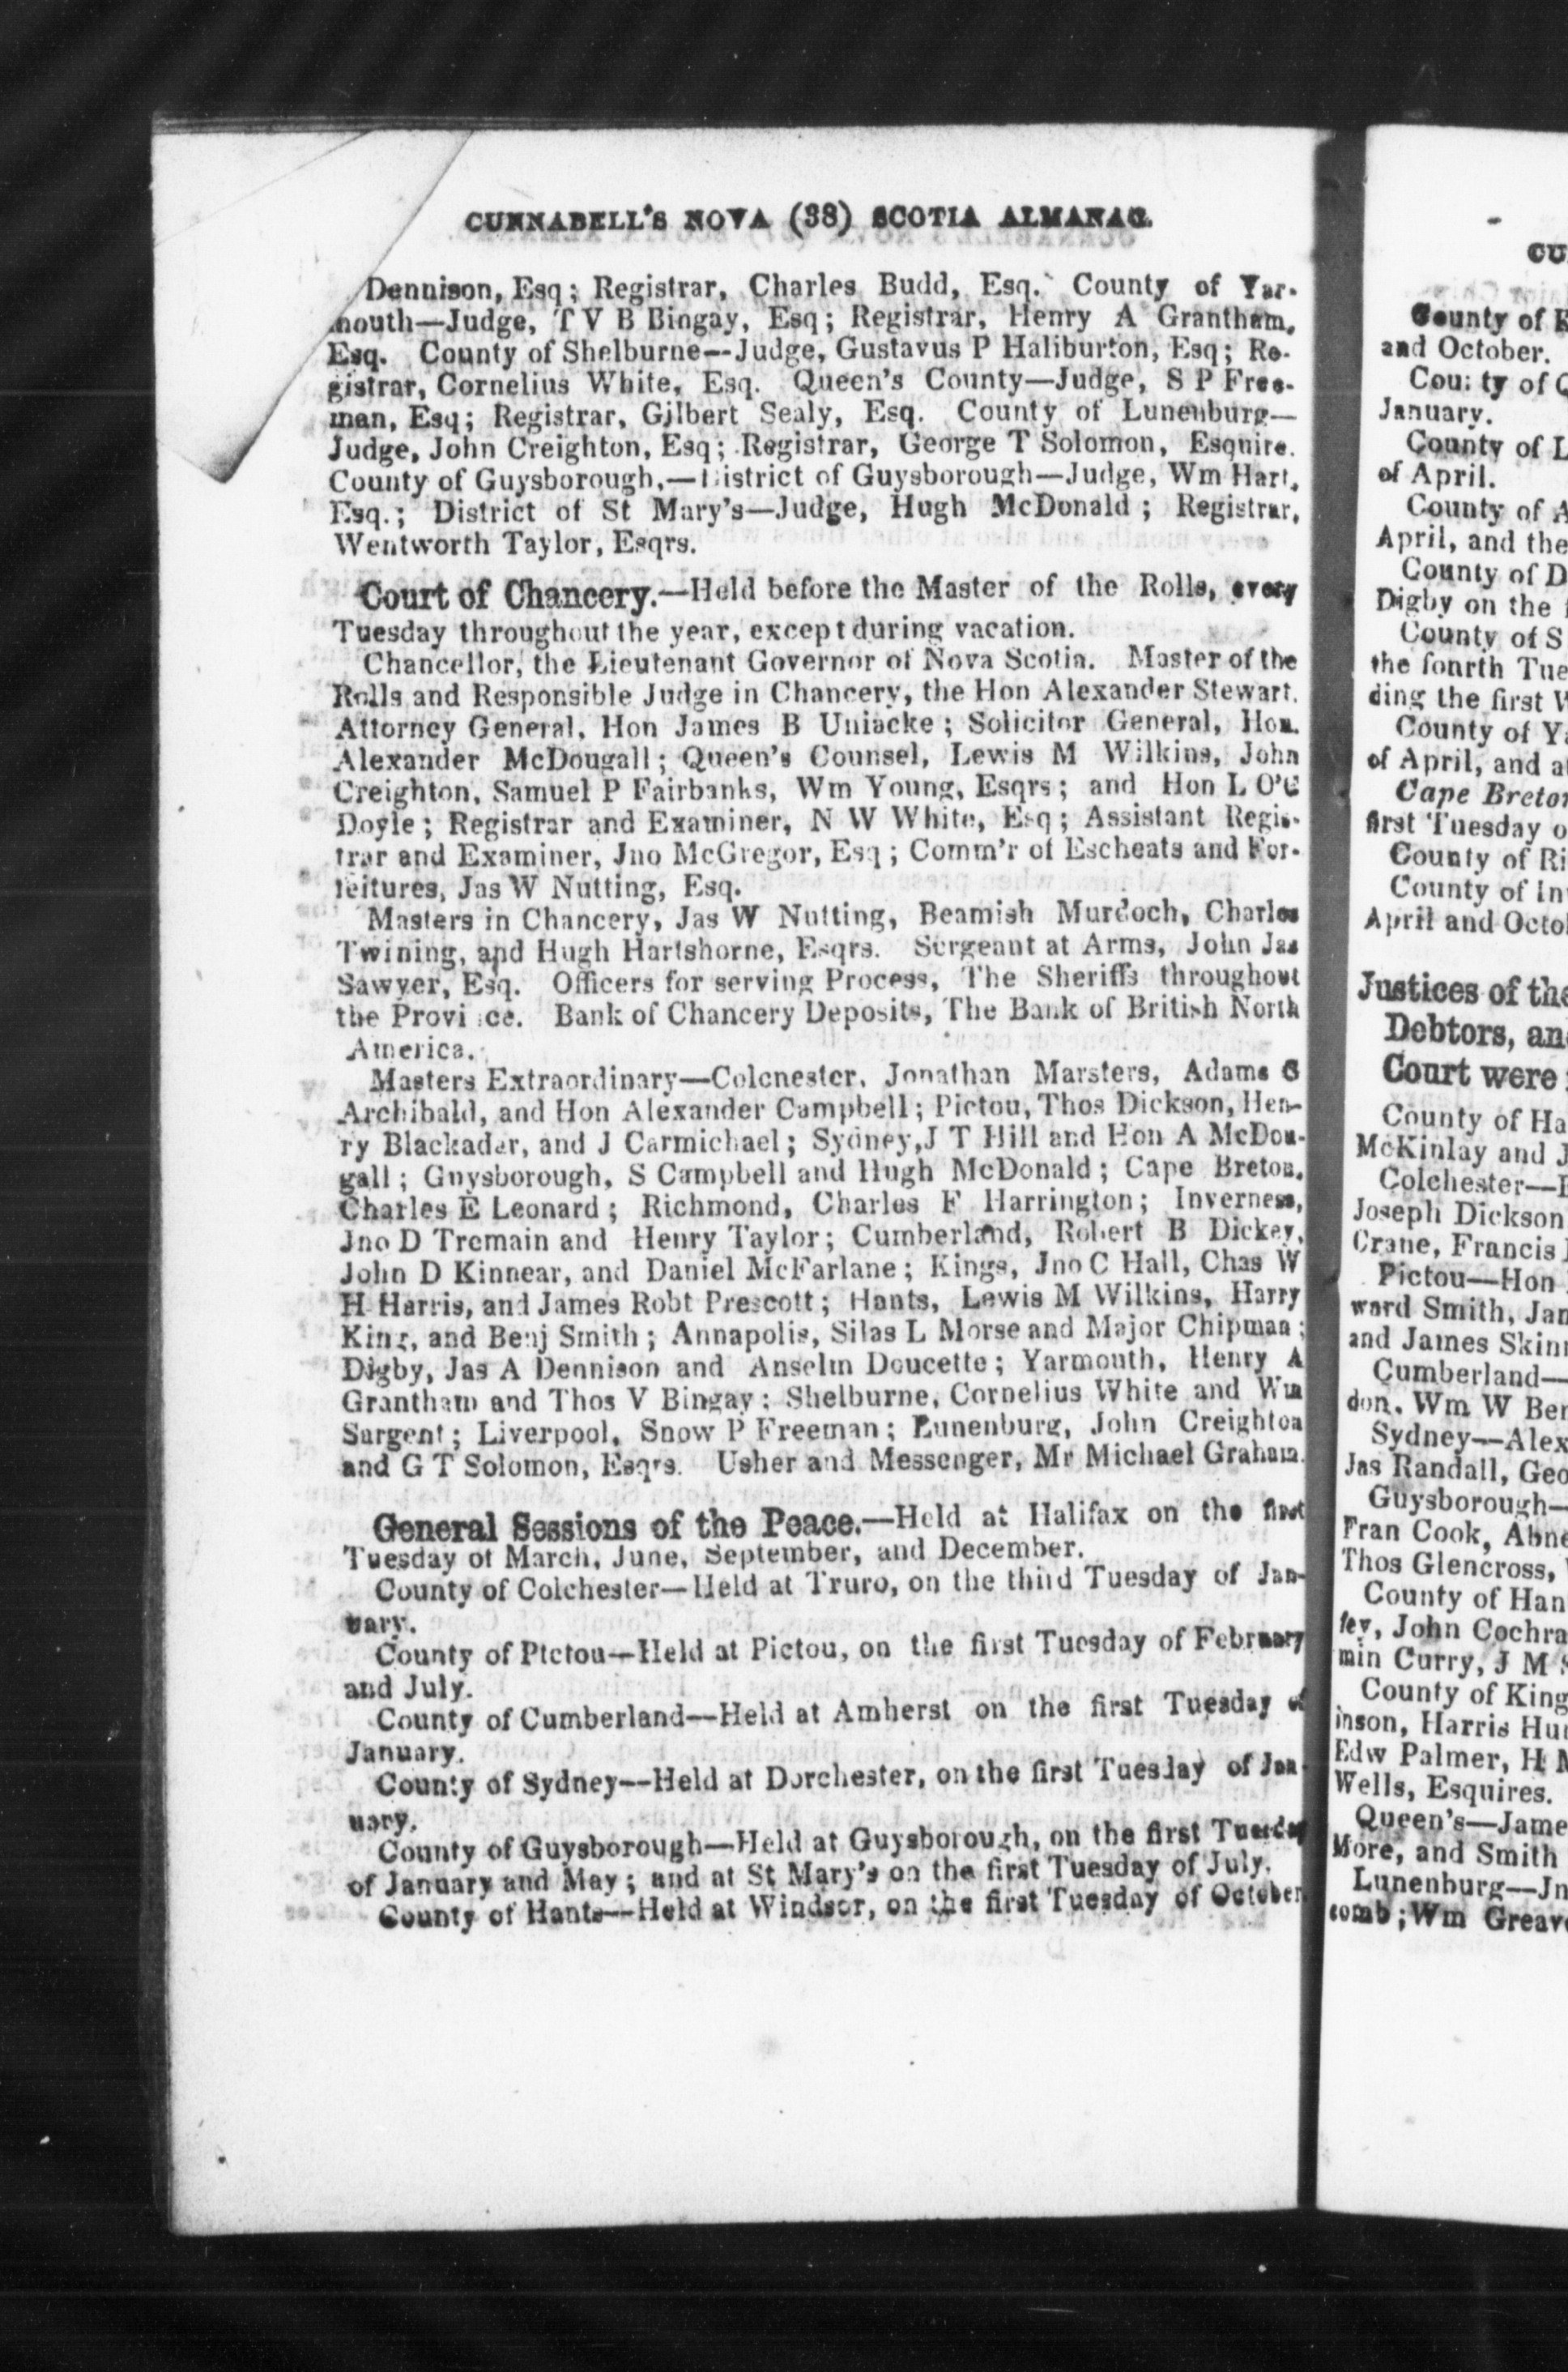 CUNNABELL'S NOVA (38) SCOTIA ALMANAC.
Dennison, Esq; Registrar, Charles Budd, Esq. County of Yar-
mouth—Judge, T V B Bingay, Esq; Registrar, Henry A Grantham,
Esq. County of Shelburne--Judge, Gustavus P Haliburton, Esq; Re-
gistrar, Cornelius White, Esq. Queen's County—Judge, S P Free-
man, Esq; Registrar, Gilbert Sealy, Esq. County of Lunenburg—
Judge, John Creighton, Esq; Registrar, George T Solomon, Esquire.
County of Guysborough,—District of Guysborough—Judge, Wm Hart,
Esq.; District of St Mary's—Judge, Hugh McDonald; Registrar,
Wentworth Taylor, Esqrs.
Court of Chancery.—Held before the Master of the Rolls, every
Tuesday throughout the year, except during vacation.
Chancellor, the Lieutenant Governor of Nova Scotia. Master of the
Rolls and Responsible Judge in Chancery, the Hon Alexander Stewart.
Attorney General, Hon James B Uniacke; Solicitor General, Hon.
Alexander McDougall; Queen's Counsel, Lewis M Wilkins, John
Creighton, Samuel P Fairbanks, Wm Young, Esqrs; and Hon L O'C
Doyle; Registrar and Examiner, N W White, Esq; Assistant Regis-
trar and Examiner, Jno McGregor, Esq; Comm'r of Escheats and For-
feitures, Jas W Nutting, Esq.
Masters in Chancery, Jas W Nutting, Beamish Murdoch, Charles
Twining, and Hugh Hartshorne, Esqrs. Sergeant at Arms, John Jas
Sawyer, Esq. Officers for serving Process, The Sheriffs throughout
the Provi ce. Bank of Chancery Deposits, The Bank of British North
America.
Masters Extraordinary—Colcnester, Jonathan Marsters, Adams G
Archibald, and Hon Alexander Campbell; Pictou, Thos Dickson, Hen-
ry Blackader, and J Carmichael; Sydney, J T Hill and Hon A McDou-
gall; Guysborough, S Campbell and Hugh McDonald; Cape Breton,
Charles E Leonard; Richmond, Charles F Harrington; Inverness,
Jno D Tremain and Henry Taylor; Cumberland, Robert B Dickey,
John D Kinnear, and Daniel McFarlane; Kings, Jno C Hall, Chas W
H Harris, and James Robt Prescott; Hants, Lewis M Wilkins, Harry
King, and Benj Smith; Annapolis, Silas L Morse and Major Chipman;
Digby, Jas A Dennison and Anselm Doucette; Yarmouth, Henry A
Grantham and Thos V Bingay; Shelburne, Cornelius White and Wm
Sargent; Liverpool, Snow P Freeman; Lunenburg, John Creighton
and G T Solomon, Esqrs. Usher and Messenger, Mr Michael Graham.
General Sessions of the Peace.—Held at Halifax on the first
Tuesday of March, June, September, and December.
County of Colchester—Held at Truro, on the third Tuesday of Jan-
uary.
County of Ptctou—Held at Pictou, on the first Tuesday of February
and July.
County of Cumberland—Held at Amherst on the first Tuesday of
January.
County of Sydney--Held at Dorchester, on the first Tuesday of Jan-
uary.
County of Guysborough—Held at Guysborough, on the first Tuesday
of January and May; and at St Mary's on the first Tuesday of July.
County of Hants—Held at Windsor, on the first Tuesday of October
CU
County of
and October.
County of
January.
County of L
of April.
County of A
April, and the
County of D
Digby on the
County of S
the fourth Tue
ding the first
County of Y
of April, and a
Cape Breto
first Tuesday o
County of Ri
County of In
April and Octo
Justices of the
Debtors, an
Court were
County of Ha
McKinlay and J
Colchester—
Joseph Dickson
Crane, Francis
Pictou—Hon
ward Smith, Jan
and James Skin
Cumberland—
don, Wm W Ber
Sydney—Alex
Jas Randall, Geo
Guysborough—
Fran Cook, Abne
Thos Glencross,
County of Han
ley, John Cochra
min Curry, J M
County of King
inson, Harris Hu
Edw Palmer, H
Wells, Esquires.
Queen's—Jame
More, and Smith
Lunenburg—Jn
comb; Wm Greav